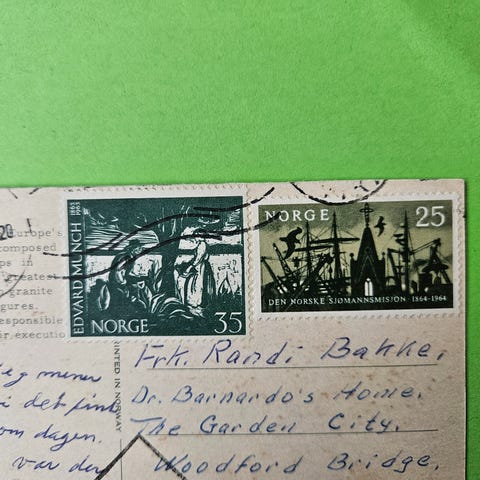 20
Europe's
composed
ps in
greatest
granite
gures.
responsible
ir executio
EDVARD MUNCH 1863 1963
NORGE 35
NORGE 25
DEN NORSKE SJØMANNSMISJON 1864-1964
PRINTED IN NORWAY
eg mener
i det fint
om dagen.
var den
Frk. Randi Bakke,
Dr. Barnardo's Home,
The Garden City,
Woodford Bridge,